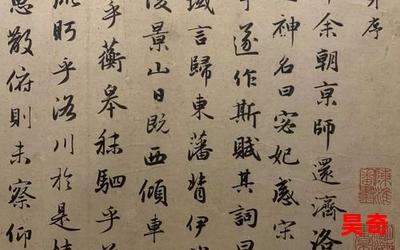 序
余朝京師還濟洛
之神名曰宓妃感宋
遂作斯賦其詞曰
域言歸東藩背伊
景山日既西傾車
乎蘅皋秣駟乎
盻乎洛川於是精
思散俯則未察仰
昊奇